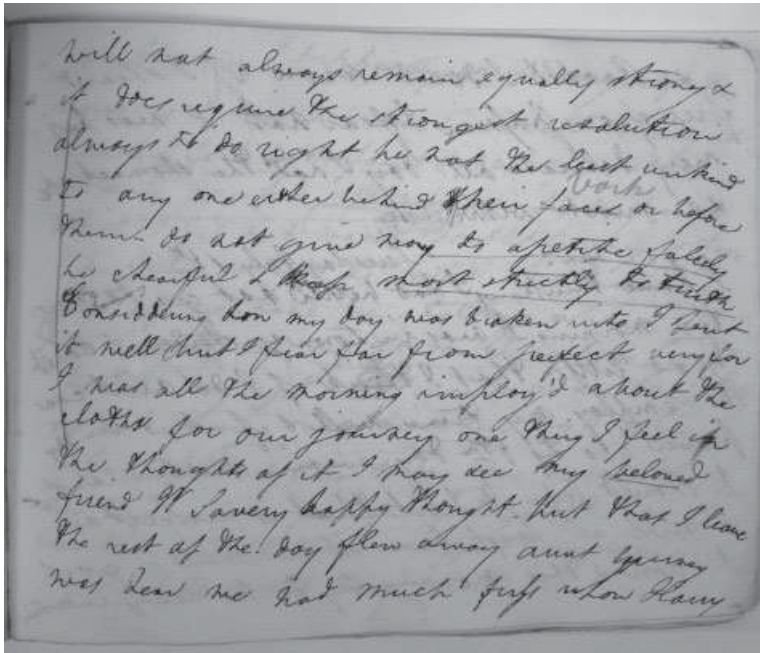 will not always remain equally strong &
it does require the strongest resolution
always to do right be not the least unkind
back
to any one either behind their faces or before
them do not give way to apetite falsly
be chearful & keep most strictly to truth
Considdering how my day was broken into I spent
it well but I fear far from perfect very for
I was all the morning imploy'd about the
cloths for our journey one thing I feel in
the thoughts of it I may see my beloved
friend W Savery happy thought but that I leave
the rest of the day flew away aunt gurney
was hear we had much fuss